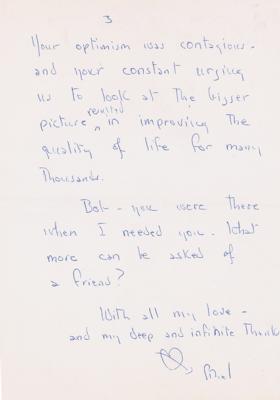 3
Your optimism was contagious -
and your constant urging
us to look at the bigger
resulted
picture ^ in improving the
quality of life for many
thousands.
Bob - you were there
when I needed you. What
more can be asked of
a friend?
With all my love -
and my deep and infinite thanks